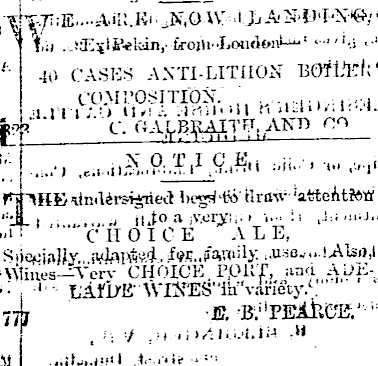 WE ARE NOW LANDING,
Ex Pekin, from London—
40 CASES ANTI-LITHON BOILER
COMPOSITION.
C. GALBRAITH AND CO
NOTICE.
THE undersigned begs to draw attention
to a very
CHOICE ALE,
Specially adapted for family use. Also,
Wines—Very CHOICE PORT, and ADE-
LAIDE WINES in variety.
777 E. B. PEARCE.